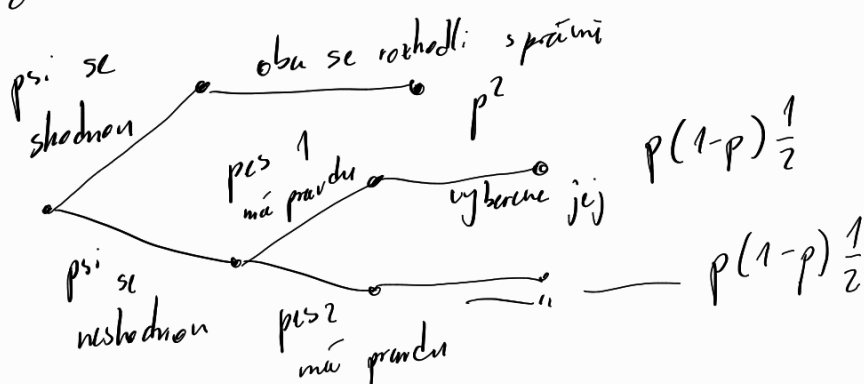 psi se
shodnou
oba se rozhodli správně
p²
pes 1
má pravdu
vybereme jej
p(1-p) 1/2
psi se
neshodnou
pes 2
má pravdu
—〃— p(1-p) 1/2